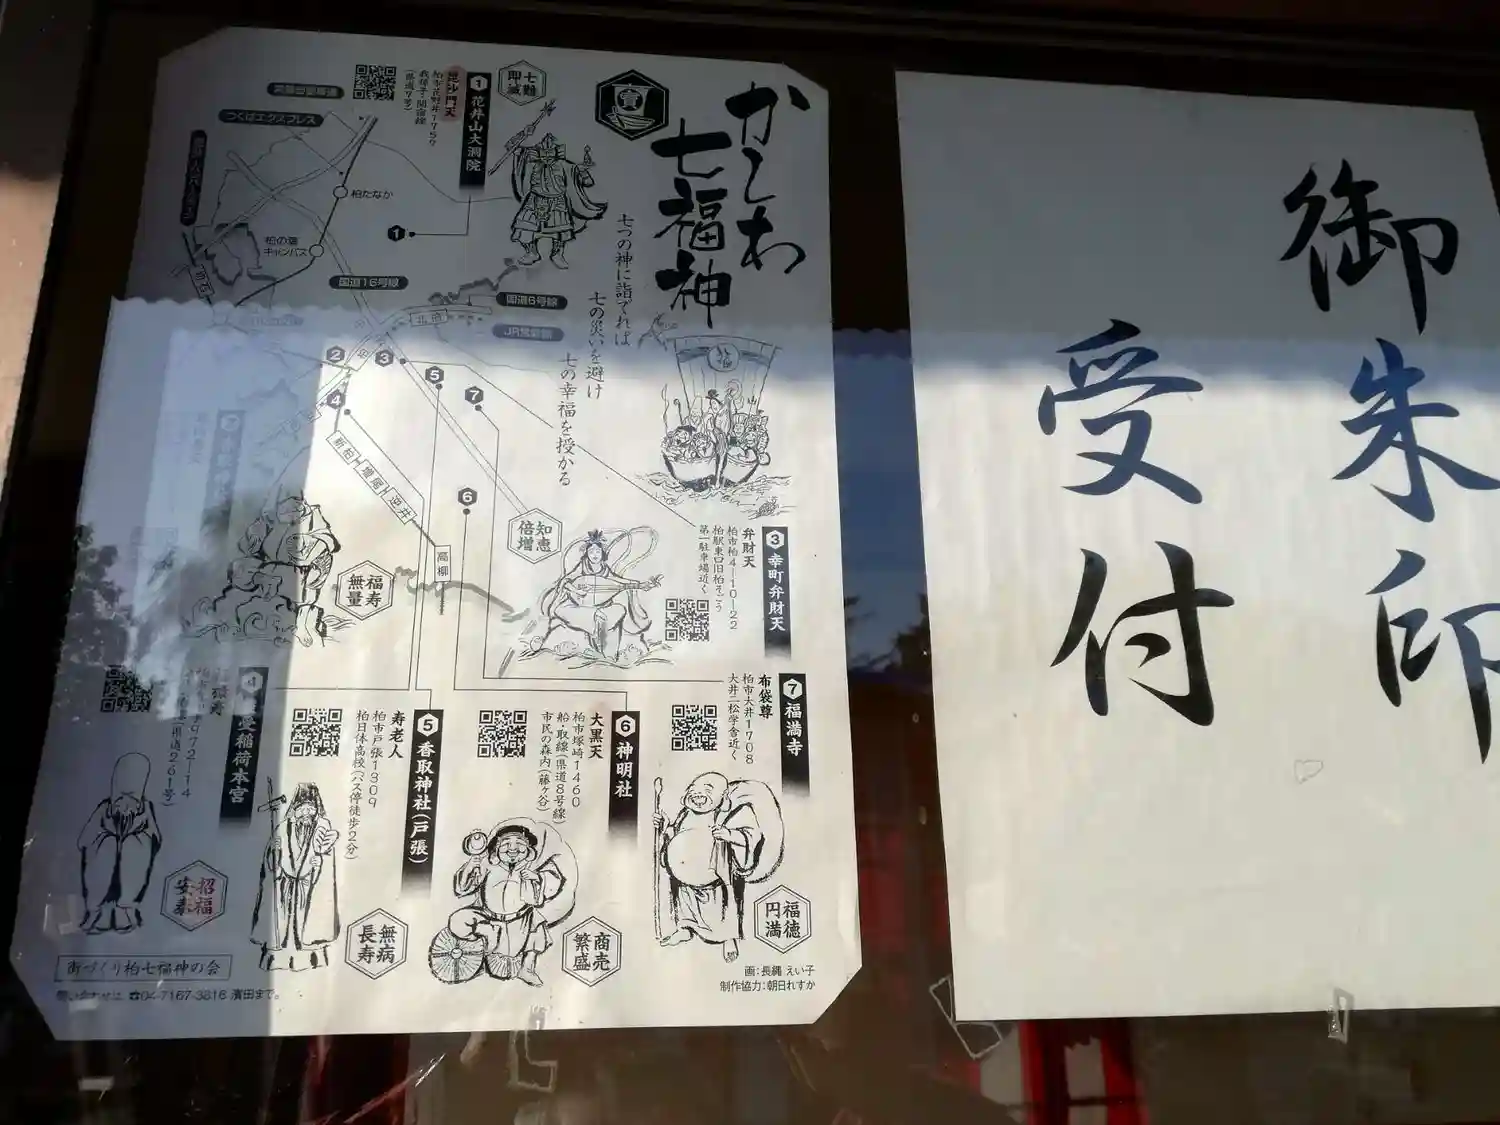 かしわ
七福神
寳
七つの神に詣でれば
七の災いを避け
七の幸福を授かる
七難
即滅
1 花井山大洞院
毘沙門天
つくばエクスプレス
柏たなか
柏の葉
キャンパス
国道16号線
国道6号線
JR常磐線
北柏
柏
1
2
3
4
5
6
7
新柏
増尾
逆井
高柳
福
知恵
倍増
3 幸町弁財天
弁財天
柏市柏4-10-22
柏駅東口旧柏そごう
第一駐車場近く
福寿
無量
7 福満寺
布袋尊
柏市大井1708
大井二松学舎近く
福徳
円満
6 神明社
大黒天
柏市塚崎1460
船・取線(県道8号線)
市民の森内(藤ヶ谷)
商売
繁盛
5 香取神社(戸張)
寿老人
柏市戸張1309
柏日体高校(バス停徒歩2分)
無病
長寿
稲荷本宮
招福
安泰
街づくり柏七福神の会
問い合わせは ☎04-7167-3816 濱田まで。
画:長縄 えい子
制作協力:朝日れすか
御朱印
受付